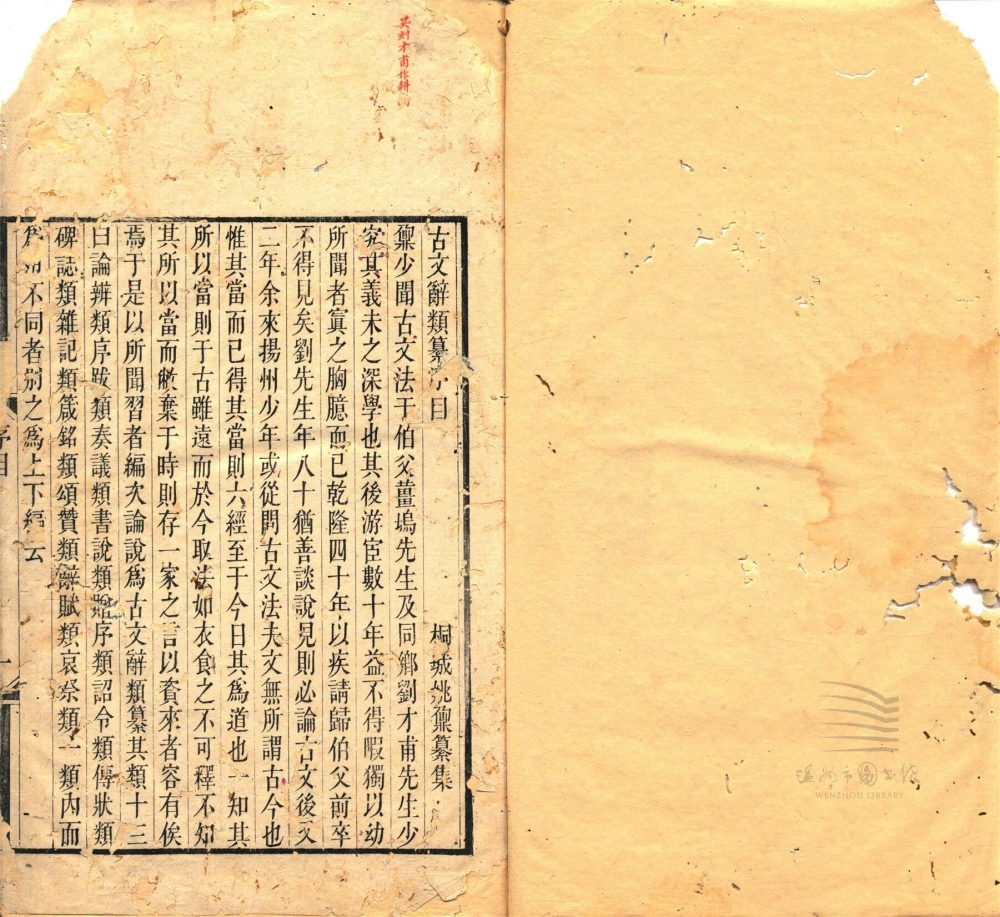 吳刻才甫作耕南
古文辭類纂序目
桐城姚鼐纂集
鼐少聞古文法于伯父薑塢先生及同鄉劉才甫先生少
究其義未之深學也其後游宦數十年益不得暇獨以幼
所聞者寘之胸臆而已乾隆四十年以疾請歸伯父前卒
不得見矣劉先生年八十猶善談說見則必論古文後又
二年余來揚州少年或從問古文法夫文無所謂古今也
惟其當而已得其當則六經至于今日其爲道也一知其
所以當則于古雖遠而於今取法如衣食之不可釋不知
其所以當而敝棄于時則存一家之言以資來者容有俟
焉于是以所聞習者編次論說爲古文辭類纂其類十三
曰論辨類序跋類奏議類書說類贈序類詔令類傳狀類
碑誌類雜記類箴銘類頌贊類辭賦類哀祭類一類內而
爲用不同者别之爲上下編云
序目
一
温州市圖書館
WENZHOU LIBRARY